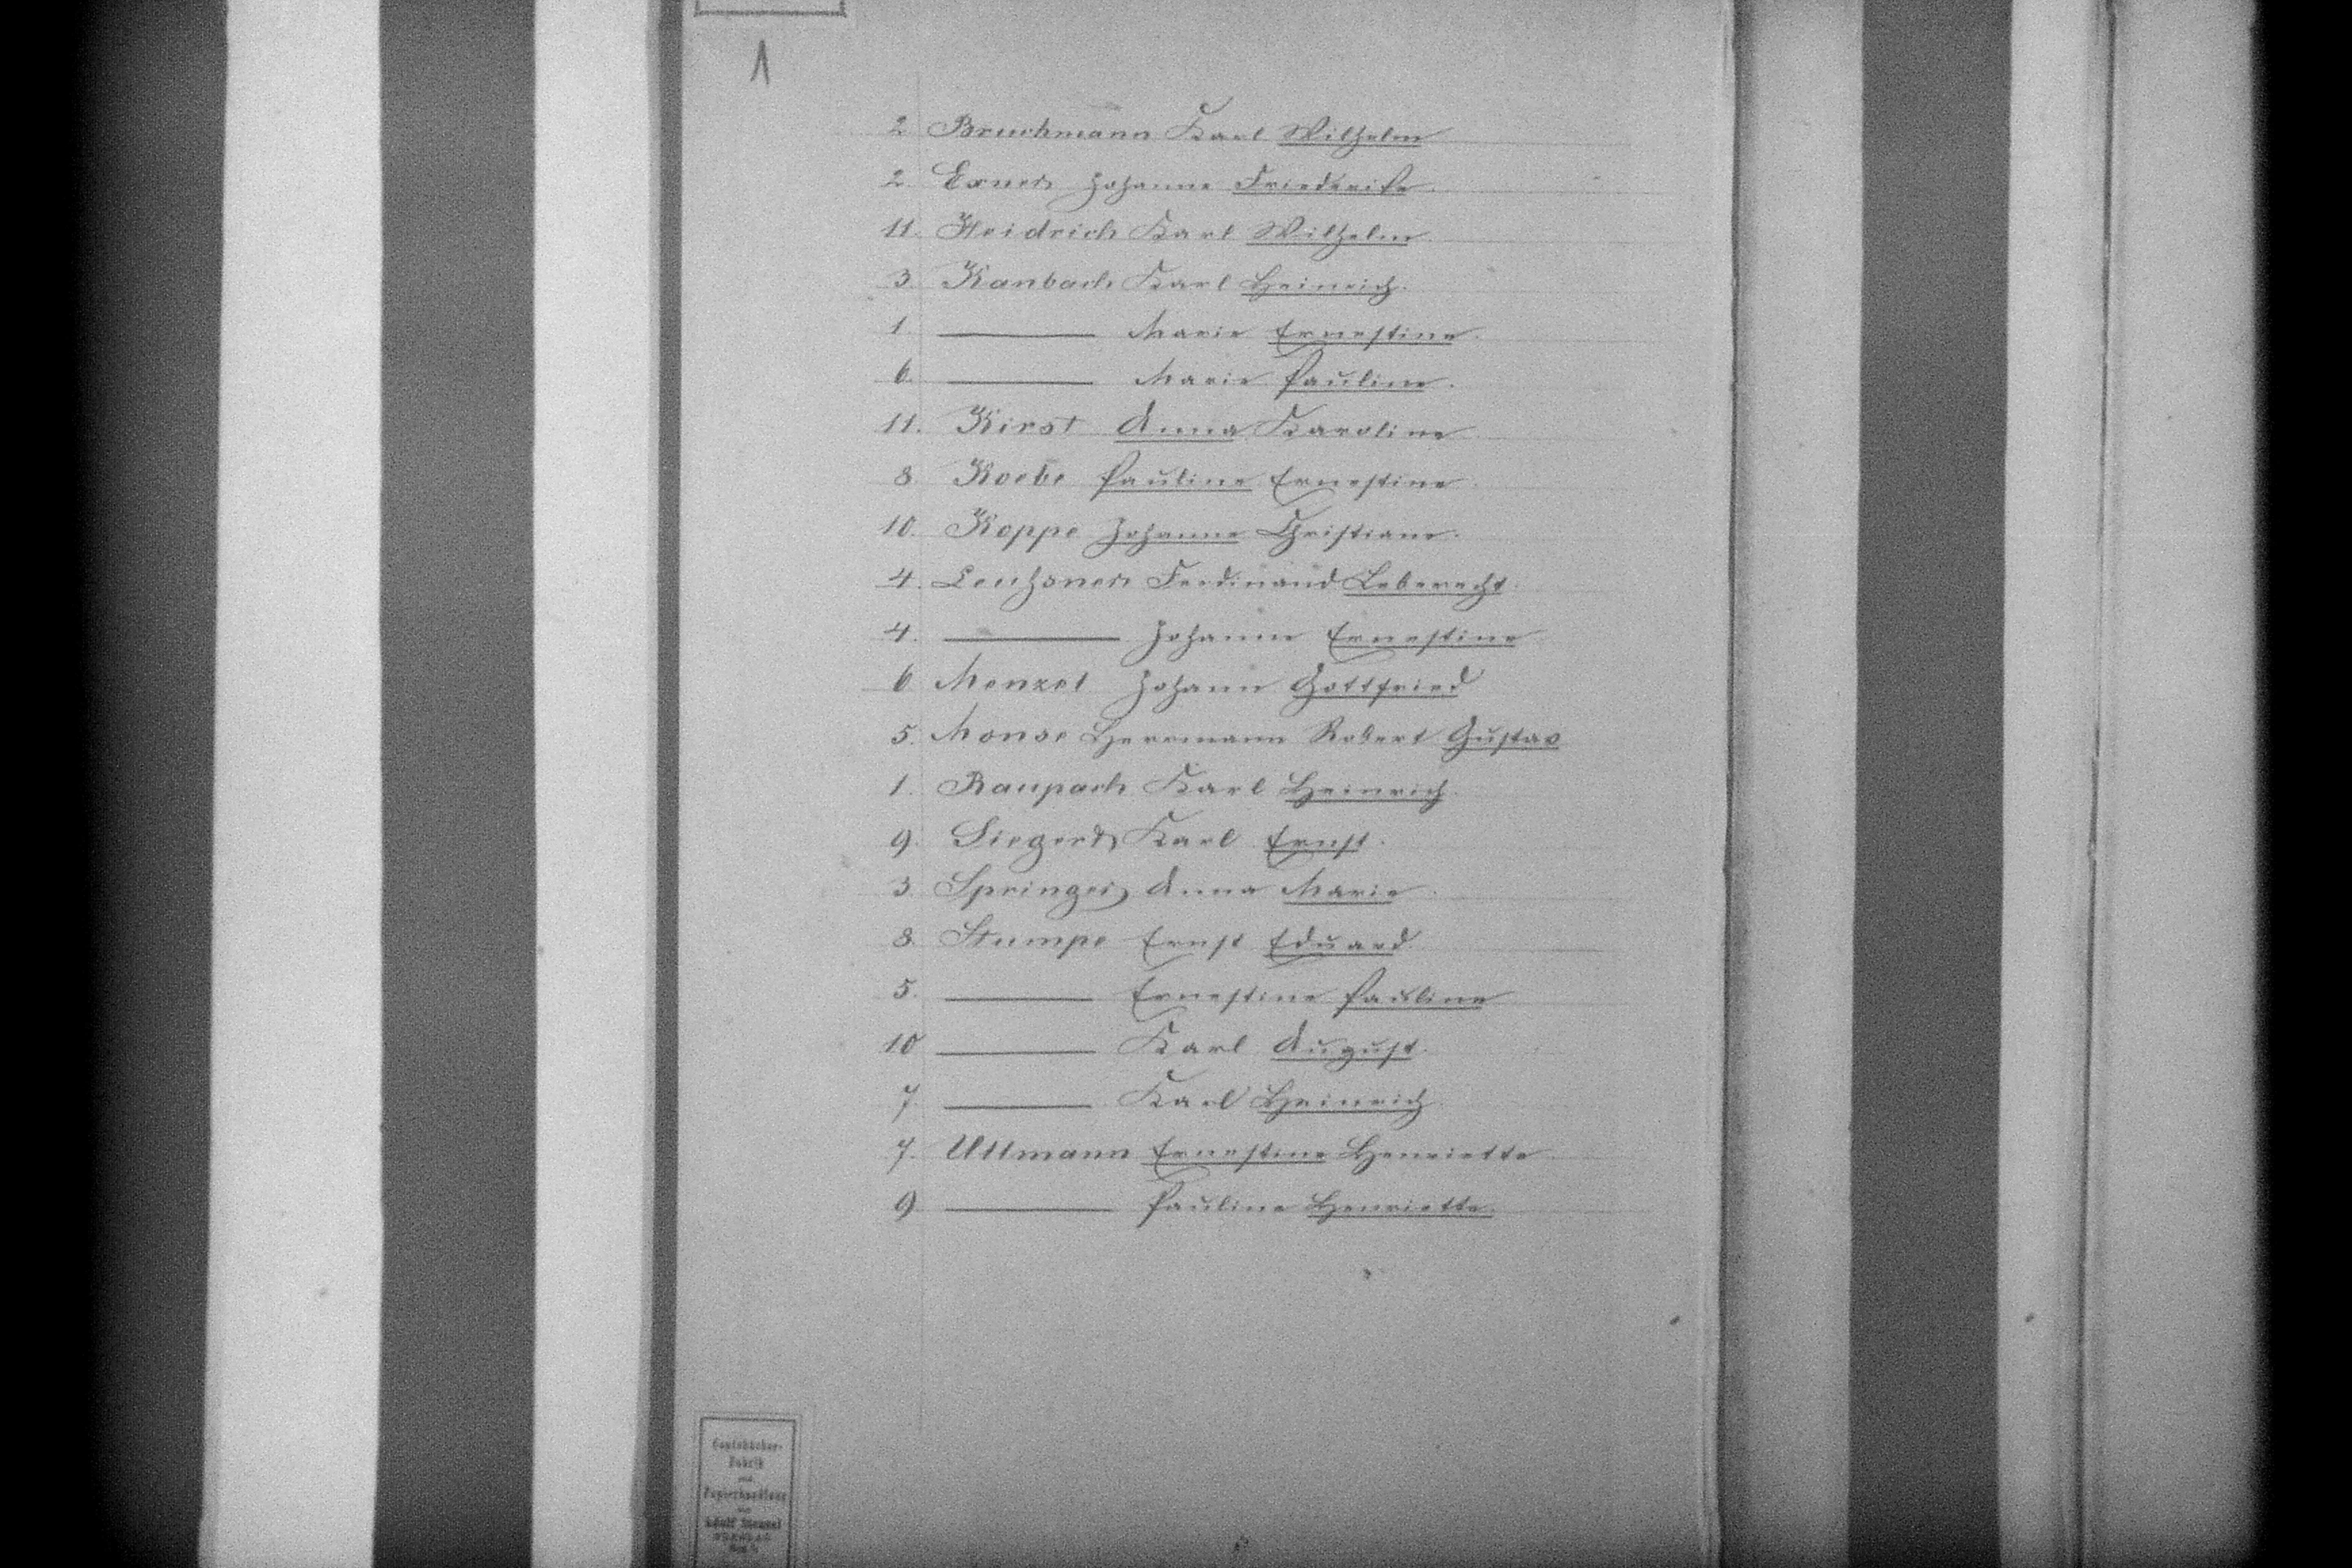 1
2 Bruchmann Karl Wilhelm
2. Exner Johanne Friederike.
11. Heidrich Karl Wilhelm.
3. Kanbach Karl Heinrich.
1. ——— Marie Ernestine.
6. ——— Marie Pauline.
11. Kirst Anna Karoline
8 Koebe Pauline Ernestine.
10. Koppe Johanne Christiane.
4. Leuchsner Ferdinand Leberecht.
4. ——— Johanne Ernestine
6 Menzel Johann Gottfried
5. Monse Herrmann Robert Gustav
1. Raupach Karl Heinrich.
9. Siegert Karl Ernst.
3. Springer Anna Marie.
8. Stumpe Ernst Eduard.
5. ——— Ernestine Pauline
10 ——— Karl August.
7. ——— Karl Heinrich
7. Ullmann Ernestine Henriette
9 ——— Pauline Henriette.
Contobücher-
Fabrik
und
Papierhandlung
von
Adolf Menzel